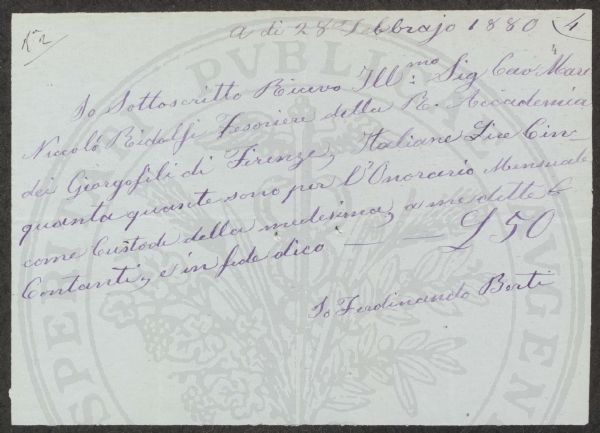 N° 2
a di 28 Febbrajo 1880
4
4
Io Sottoscritto Ricevo Ill:mo Sig Cav Mars
Niccolò Ridolfi Tesoriere della R. Accademia
dei Giorgofili di Firenze, Italiane Lire Cin=
quanta quante sono per l'Onorario Mensuale
come Custode della medesima, a me dette L
Contanti, e in fede dico — — £ 50
Io Ferdinando Berti
PVBLICA